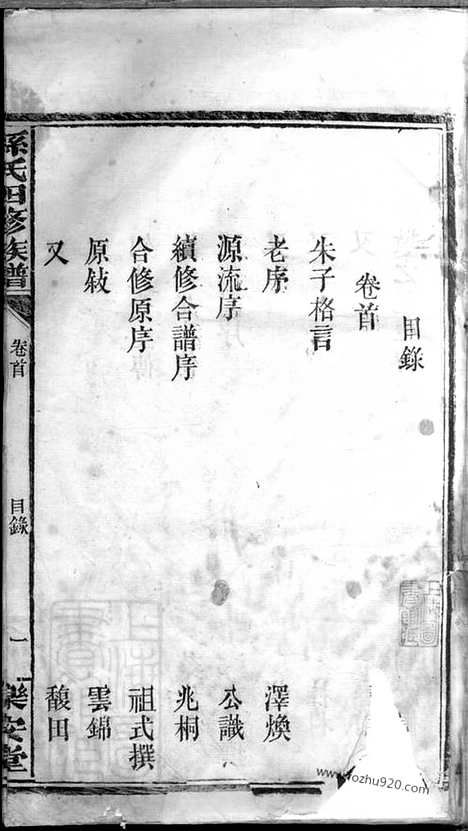 目錄
卷首
朱子格言
老序　澤煥
源流序　公識
續修合譜序　兆桐
合修原序　祖式撰
原敍　雲錦
又　馥田
孫氏四修族譜　卷首　目錄　一　樂安堂
www.fozhu920.com